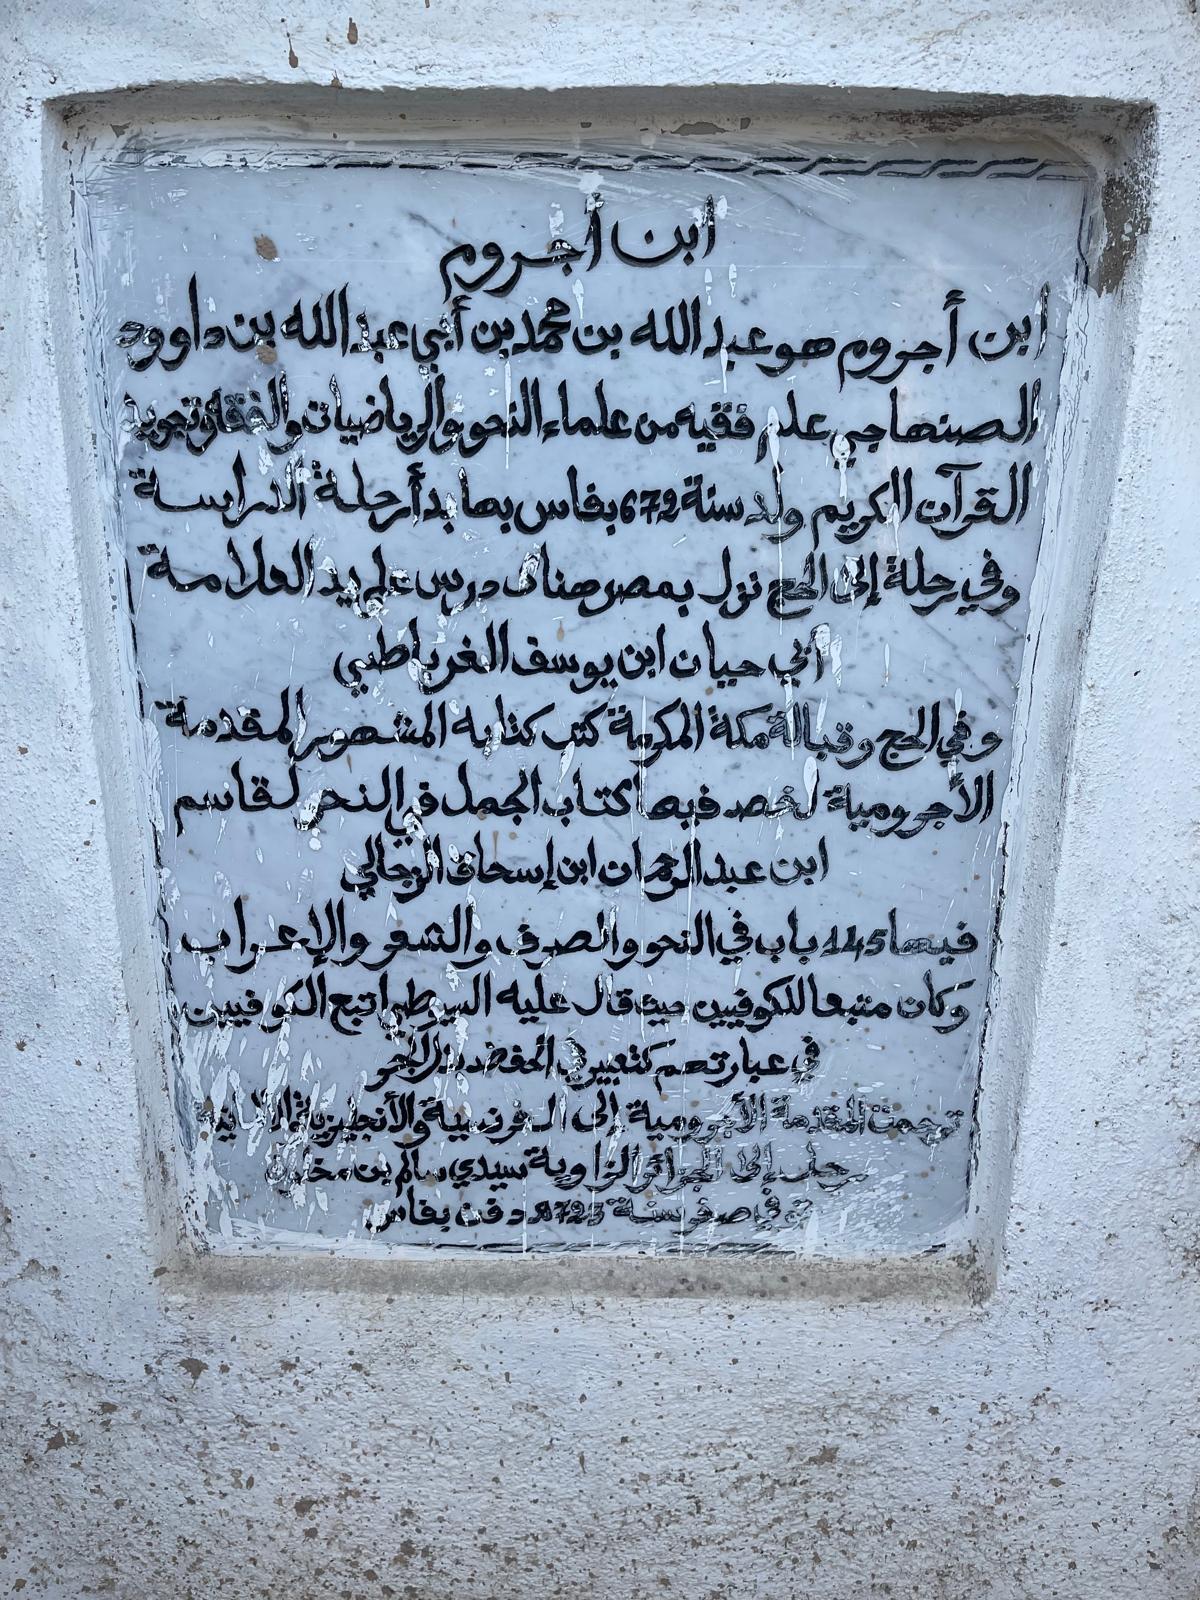 ابن أجروم
ابن أجروم هو عبد الله بن محمد بن أبي عبد الله بن داوود
الصنهاجي علم فقيه من علماء النحو والرياضيات والفقه وتجويد
القرآن الكريم ولد سنة 672 بفاس بها بدأ رحلة الدراسة
وفي رحلة إلى الحج نزل بمصر هناك درس على يد العلامة
أبي حيان ابن يوسف الغرباطي
وفي الحج وقبالة مكة المكرمة كتب كتابه المشهور المقدمة
الأجرومية لخص فيها كتاب الجمل في النحو لقاسم
ابن عبد الرحمان ابن إسحاق الزجالي
فيها 145 باب في النحو والصرف والشعر والإعراب
وكان متبعا للكوفيين حيث قال عليه السيوطي اتبع الكوفيين
في عبارتهم كتعبير في
ترجمت المقدمة الأجرومية إلى الفرنسية والأنجليزية
رحل إلى الجزائر لزاوية سيدي سالم بن
توفي صفر سنة 723 دفن بفاس